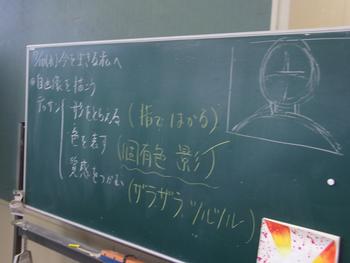 今を生きる私へ
自画像を描こう
デッサン 形をとらえる (指ではかる)
色を表す (固有色 影)
質感をつかむ (ザラザラ ツルツル)